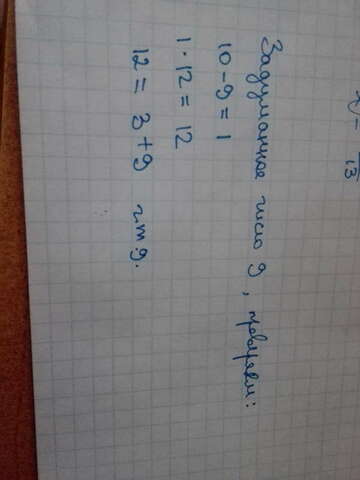 x = — 13
Задуманное число 9, проверяем:
10 - 9 = 1
1 · 12 = 12
12 = 3 + 9 ч.т.д.